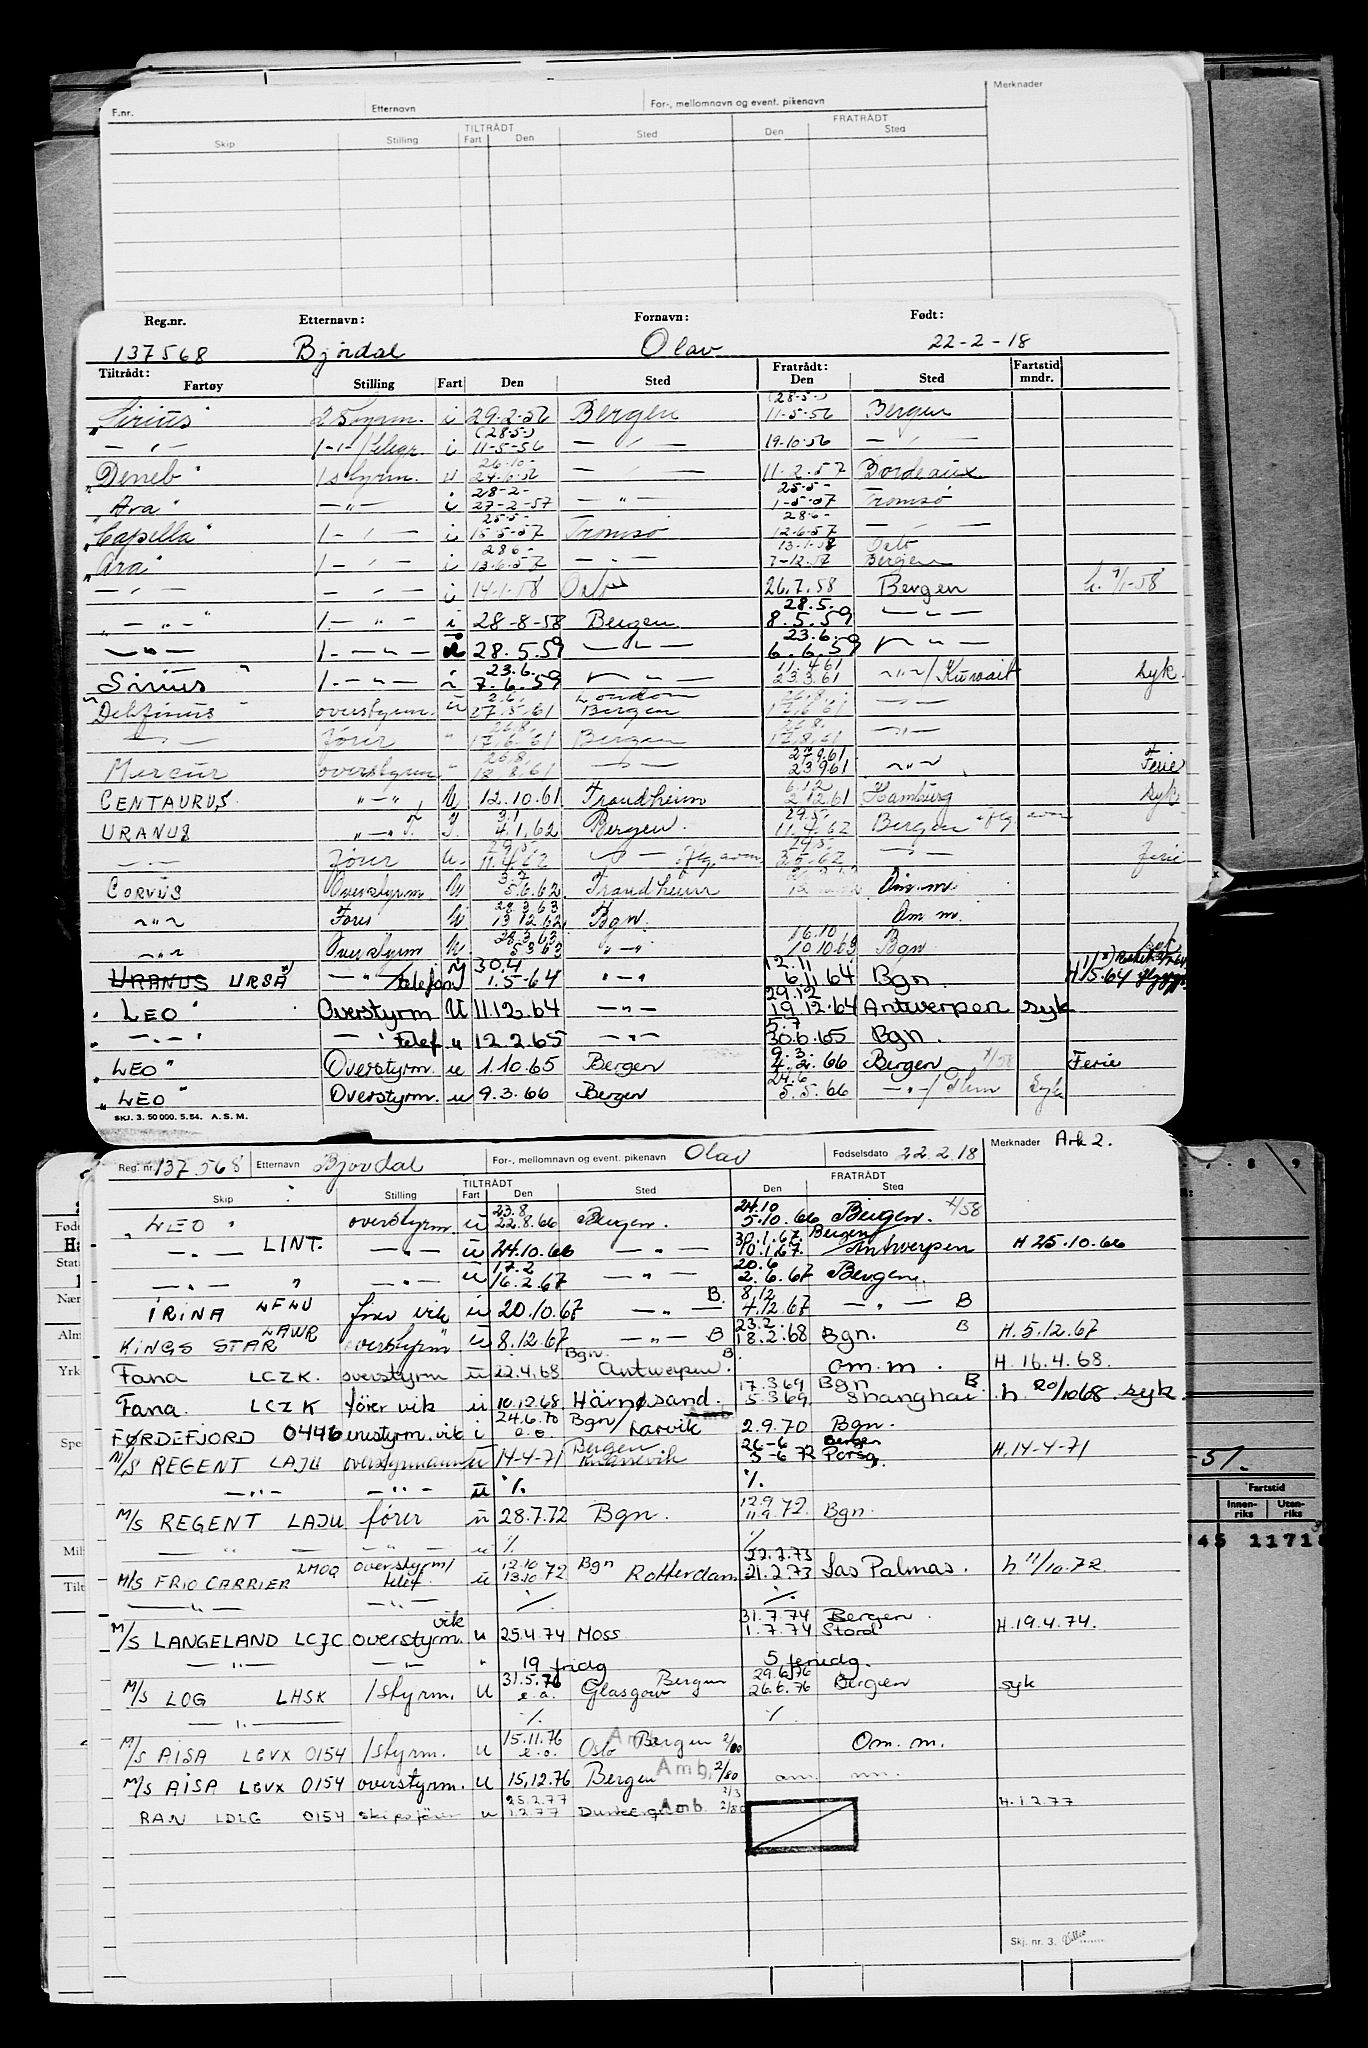 F.nr. Etternavn For-, mellomnavn og event. pikenavn Merknader
TILTRÅDT FRATRÅDT
Skip Stilling Fart Den Sted Den Sted
Reg.nr. Etternavn: Fornavn: Født:
137568 Björdal Olav 22-2-18
Tiltrådt: Fratrådt: Fartstid
Fartøy Stilling Fart Den Sted Den Sted mndr.
(28-5-)
"Sirius" 2 Styrm. i 29-2-56 Bergen 11-5-56 Bergen
(28-5-)
— " — 1-"-/telegr. i 11-5-56 — " — 19-10-56 — " —
26-10-
"Deneb" 1 styrm. — " — 11-2-57 Bordeaux
28-2- 25-5-
"Ara" — " — i 27-2-57 — " — 1-5-57 Tromsö
25-5- 28-6-
"Capella" 1- " — i 15-5-57 Tromsö 12-6-57 — " —
28-6- 13-1-58 Oslo
"Ara" 1- " — i 13-6-57 — " — 7-12-57 Bergen
— " — — " — i 14-1-58 Oslo 26.7.58 Bergen h. 7/1-58
28.5.
— " — 1- " — i 28-8-58 Bergen 8.5.59 — " —
23.6.
— " — 1- " — 28.5.59 — " — 6.6.59 — " —
23.6. 11.4.61
Sirius 1- " — 7.6.59 — " — 23.3.61 — " —/Kuwait syk.
2.6. London 26.8.
"Delfinus" overstyrm. u 27.5.61 Bergen — " —
26.8. 26.8.
— " — förer " 17.6.61 Bergen 17.8.61 — " —
26.8. 27.9.61
Mercur overstyrm. " 18.8.61 — " — 23.9.61 — " — Ferie
6.12
CENTAURUS — " — U 12.10.61 Trondheim 2.12.61 Hamburg syk.
3.1 29.5.
URANUS — " — 4.1.62 Bergen. 11.4.62 Bergen
— " — förer u. 11.4.62 — " — — " — Ferie
3.7
CORVUS Overstyrm U 5.6.62 Trondheim Om. m.
28.3.63
— " — Förer U 13.12.62 Bgn. Om m.
28.3.63 16.10
— " — Overstyrm U 5.3.63 — " — 10.10.63 Bgn
30.4 12.11
URANUS URSA — " — /telefon 1.5-64 — " — 6.11.64 Bgn. H 1/5-64
29.12
" LEO " Overstyrm U 11.12.64 — " — 19.12.64 Antwerpen syk
5.7
" — " — " — " Telef. u 12.2.65 — " — 30.6.65 Bgn.
9.3.
"LEO" Overstyrm. u 1.10.65 Bergen 4.2.66 Bergen x/58 Ferie
24.6
"LEO" Overstyrm. u 9.3.66 Bergen 5.5.66 — " — syk
SKJ. 3. 50 000. 5.54. A.S.M.
Reg. nr. 137.568 Etternavn Bjordal For-, mellomnavn og event. pikenavn Olav Fødselsdato 22.2.18 Merknader Ark 2.
TILTRÅDT FRATRÅDT
Skip Stilling Fart Den Sted Den Sted
23.8 24.10
" LEO " overstyrm. u 22.8.66 Bergen. 5.10.66 Bergen. x/58
30.1.67. Bergen/
— " — LINT. — " — u 24.10.66 — " — 10.1.67. Antwerpen H 25.10.66
17.2 20.6
— " — " — " — u 16.2.67 — " — 2.6.67 Bergen.
8.12
IRINA LFLU förer vik u 20.10.67 — " — B. 4.12.67 — " — B
23.2.
KINGS STAR LAWR overstyrm u 8.12.67 — " — B 18.2.68 Bgn. B H. 5.12.67
Bgn.
Fana LCZK. overstyrm u 22.4.68 Antwerpen. B. om. m. H. 16.4.68.
17.3.69 Bgn B
Fana. LCZK förer vik u 10.12.68 Härnøsand. 5.3.69. Shanghai h 20/10 68 syk.
24.6.70
FØRDEFJORD 0446 enestyrm. vik i e.o. Bgn/Larvik 2.9.70 Bgn.
Bergen 26-6 Bergen
M/S REGENT LAJU overstyrmann u 14-4-71 5-6 72 Porsg. H. 14-4-71
— " — — " — u ./. ./.
12.9
M/S REGENT LAJU förer u 28.7.72 Bgn. 11.9 .72. Bgn.
— " — — " — u ./. ./.
12.10 22.2.73
M/S FRIO CARRIER LMOQ overstyrm/telef. u 13.10 72 Bgn Rotterdam 21.2.73 Las Palmas. h 11/10.72
— " — — " — ./. ./.
31.7.74 Bergen
M/S LANGELAND LCJC overstyrm. vik u 25.4.74 Moss 1.7.74 Stord H. 19.4.74.
— " — — " — " 19 fridg 5 feriedg.
31.5.76 29.6.76
M/S LOG LHSK 1 styrm. U e.a. Glasgow Bergen 26.6.76 Bergen syk
— " — ./. ./.
15.11.76
M/S AISA LGVX 0154 1 styrm. u e.o. Oslo Bergen Amb. 2/80 Om. m.
M/S AISA LGVX 0154 overstyrm. u 15.12.76 Bergen Amb. 2/80 om m.
25.2.77
RAN LDLG 0154 skipsförer u 1.2.77 Amb. 2/80 H. 1.2.77
Skj. nr. 3.
-51.
Fartstid
Innenriks Utenriks
745 1171